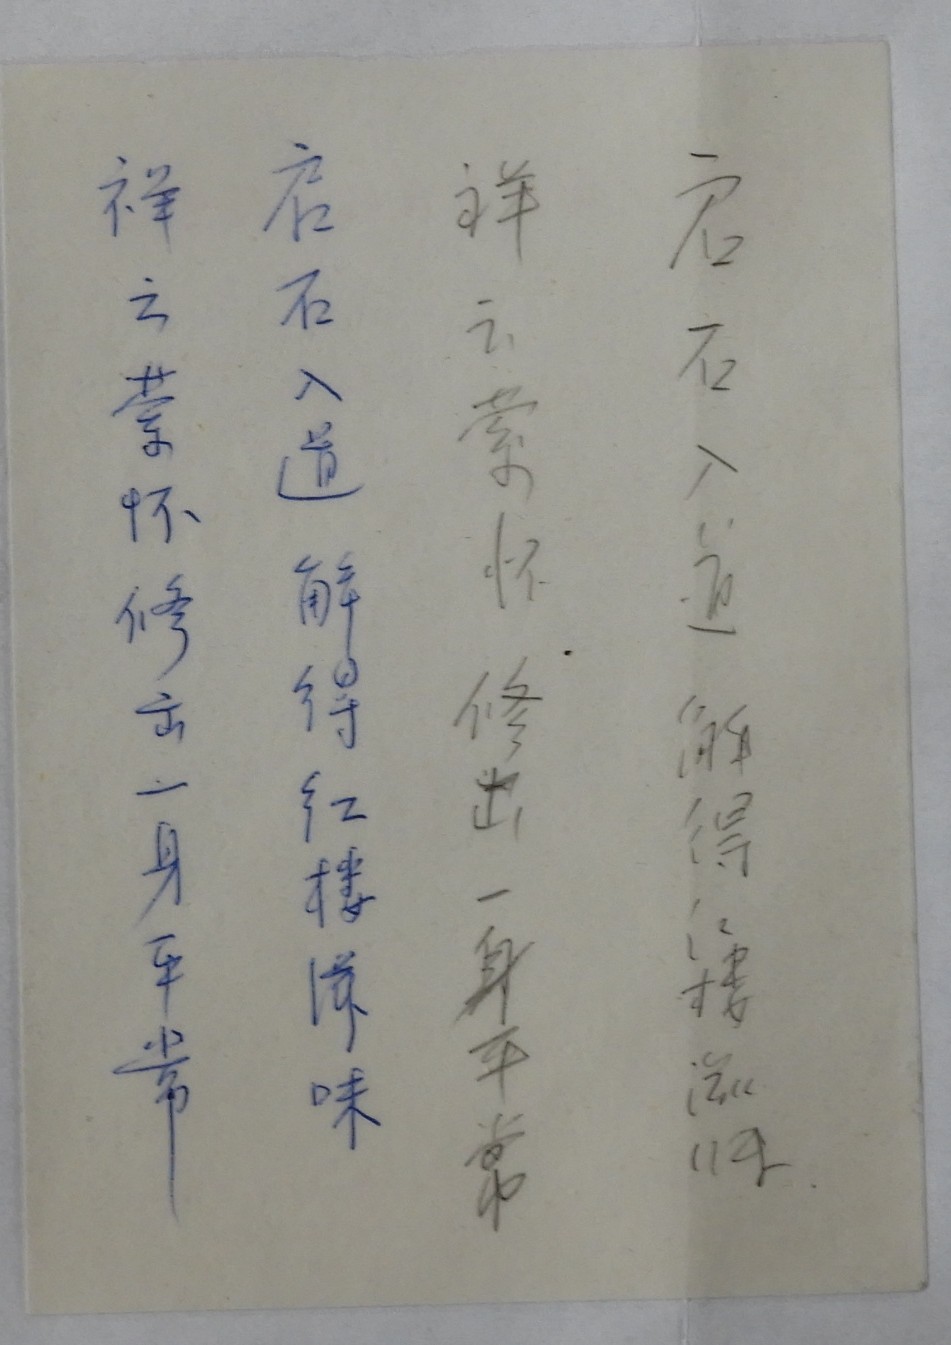 启石入道解得红楼滋味
祥云萦怀修出一身平常
启石入道解得红楼滋味
祥云萦怀修出一身平常